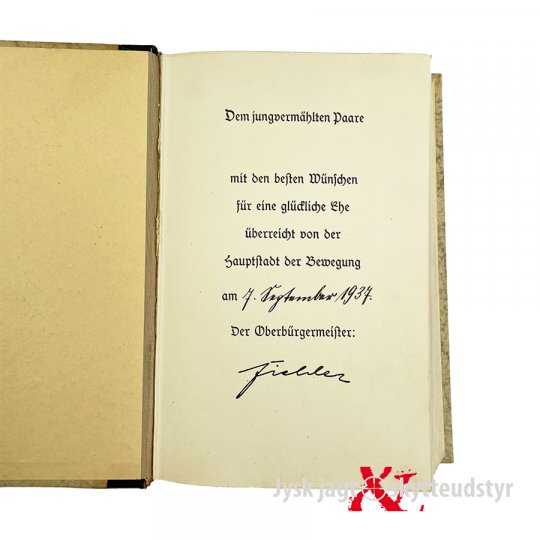 Dem jungvermählten Paare
mit den besten Wünschen
für eine glückliche Ehe
überreicht von der
Hauptstadt der Bewegung
am 7. September 1937.
Der Oberbürgermeister:
Fiehler
XL
Jysk jagt skytteudstyr